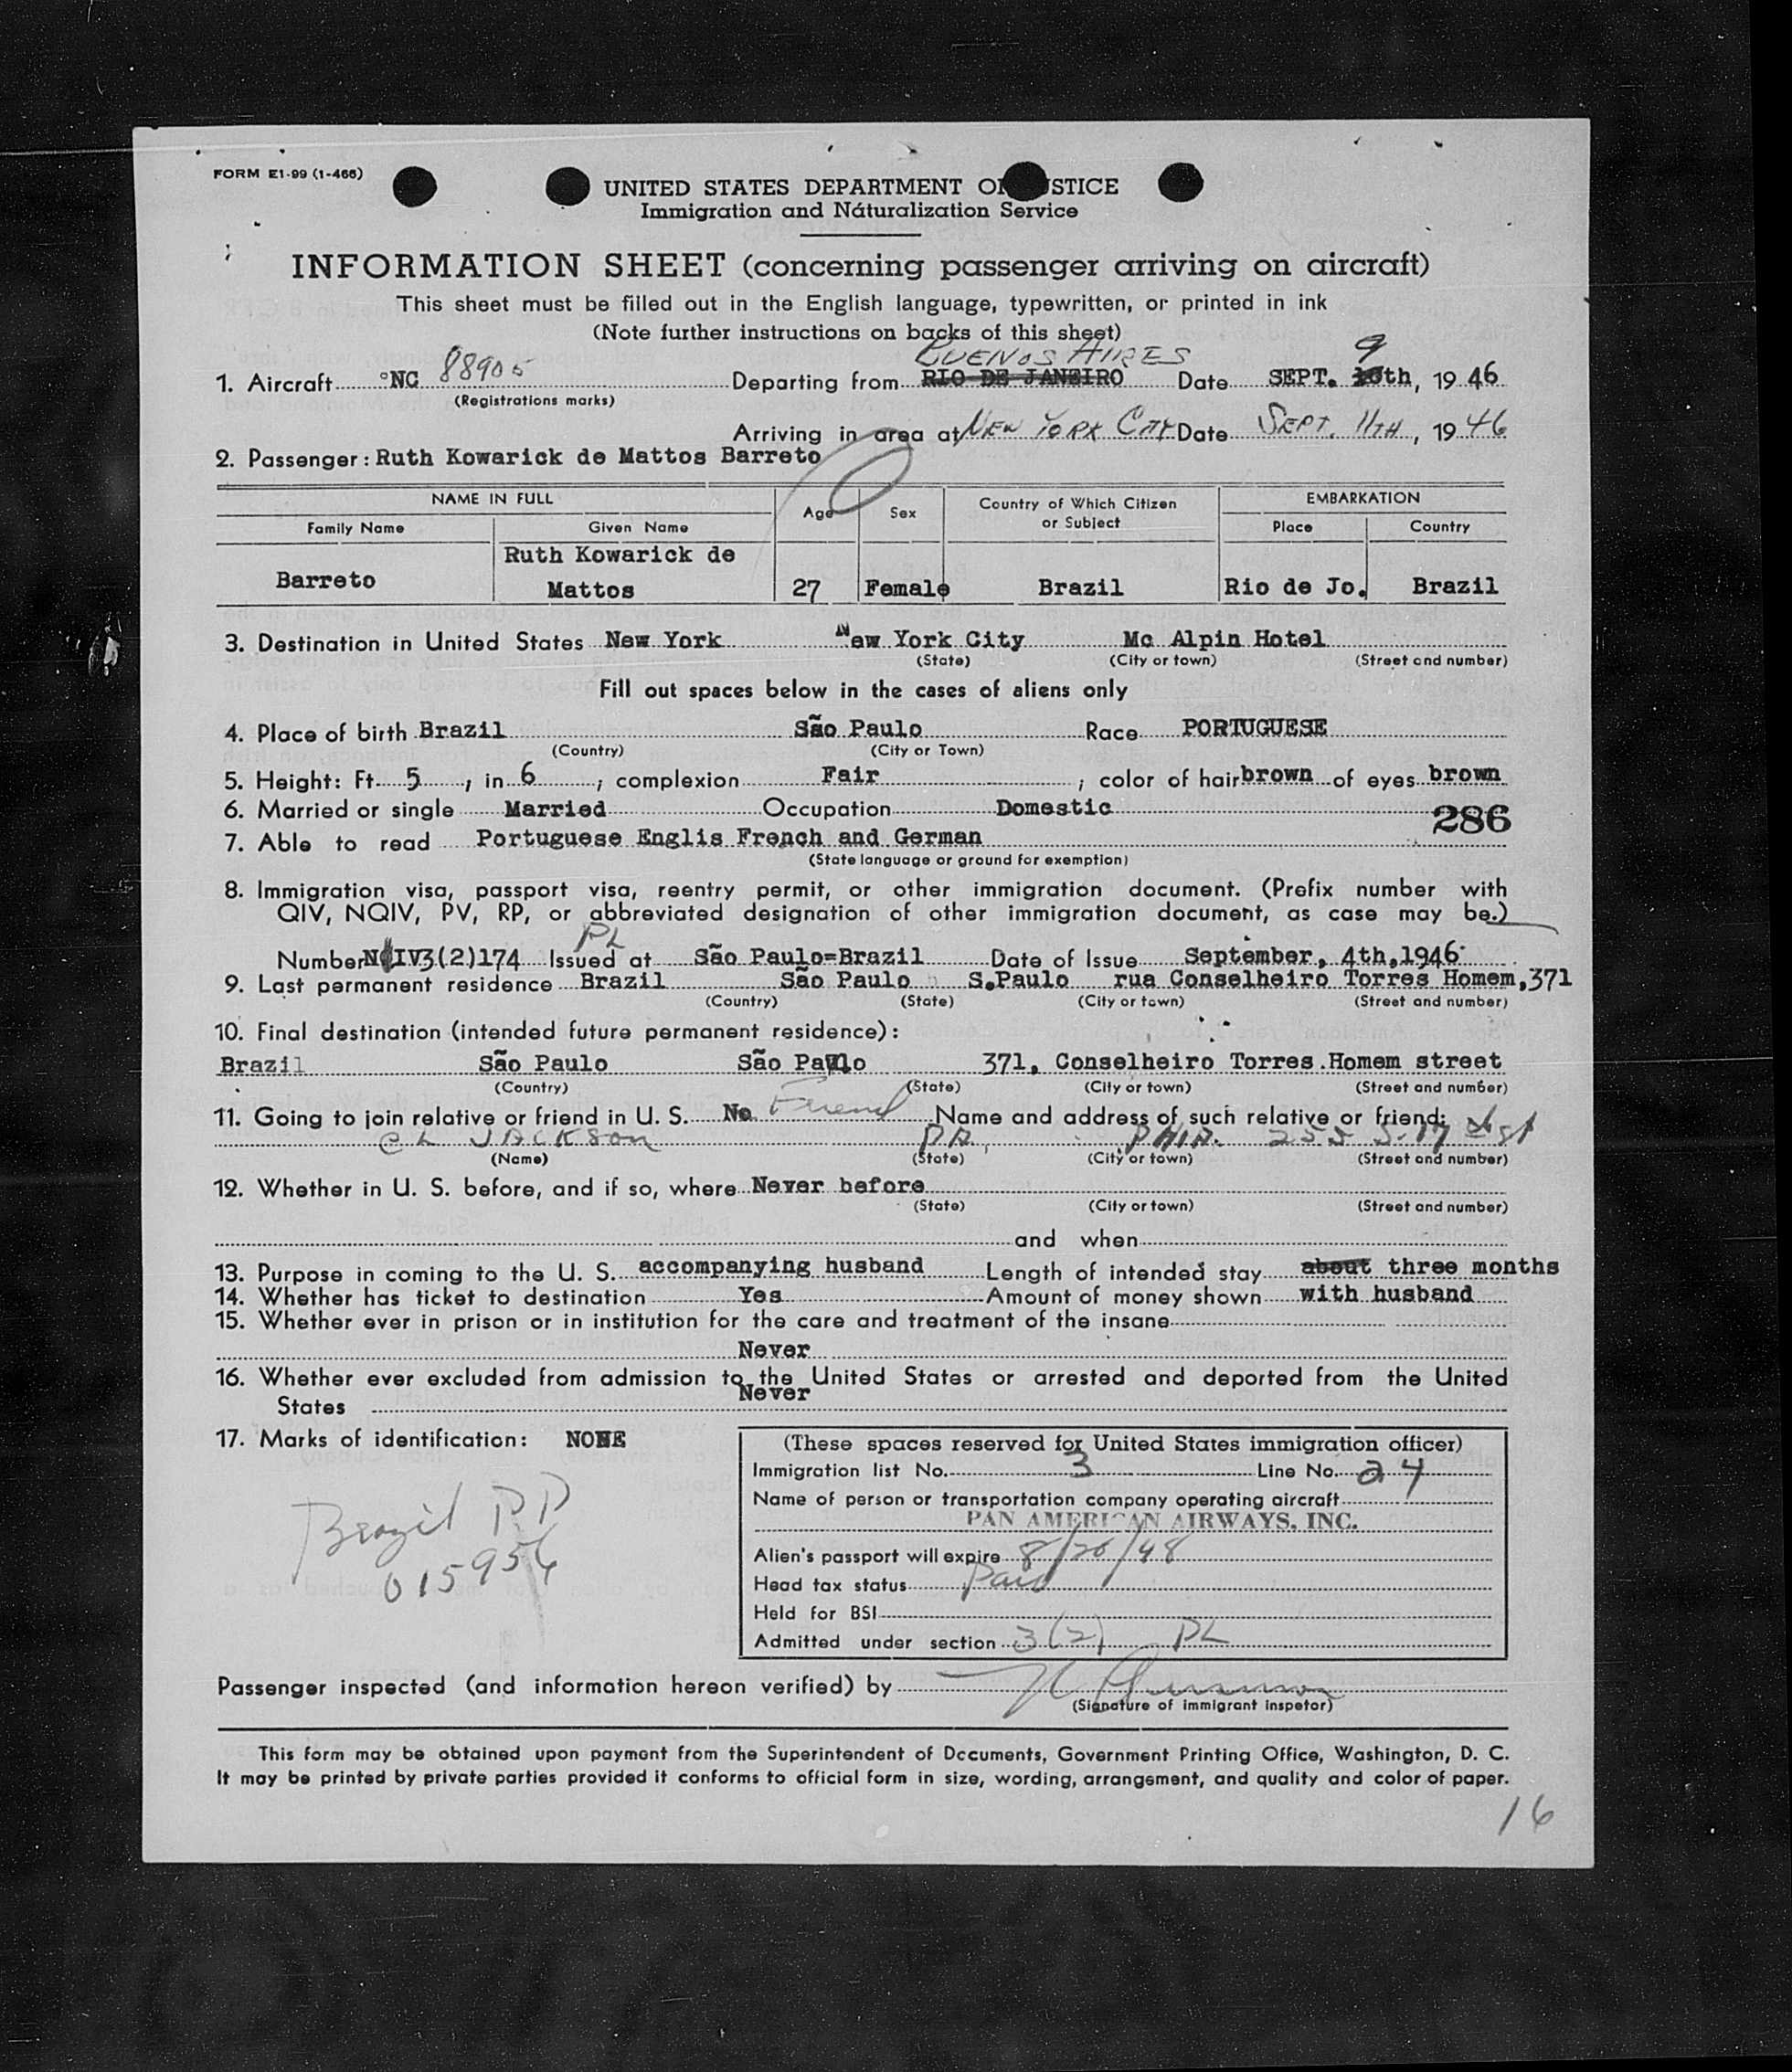 FORM E1-99 (1-466)
UNITED STATES DEPARTMENT OF JUSTICE
Immigration and Náturalization Service
INFORMATION SHEET (concerning passenger arriving on aircraft)
This sheet must be filled out in the English language, typewritten, or printed in ink
(Note further instructions on backs of this sheet)
BUENOS AIRES 9
1. Aircraft NC 88905 Departing from RIO DE JANEIRO Date SEPT. 10th, 19 46
(Registrations marks)
Arriving in area at NEW YORK CITY Date SEPT. 11TH, 19 46
2. Passenger: Ruth Kowarick de Mattos Barreto
NAME IN FULL Age Sex Country of Which Citizen or Subject EMBARKATION
Family Name Given Name Place Country
Ruth Kowarick de
Barreto Mattos 27 Female Brazil Rio de Jo. Brazil
3. Destination in United States New York New York City Mc Alpin Hotel
(State) (City or town) (Street and number)
Fill out spaces below in the cases of aliens only
4. Place of birth Brazil São Paulo Race PORTUGUESE
(Country) (City or Town)
5. Height: Ft. 5, in 6; complexion Fair; color of hair brown of eyes brown
6. Married or single Married Occupation Domestic
286
7. Able to read Portuguese Englis French and German
(State language or ground for exemption)
8. Immigration visa, passport visa, reentry permit, or other immigration document. (Prefix number with
QIV, NQIV, PV, RP, or abbreviated designation of other immigration document, as case may be.)
PL
Number NIV3(2)174 Issued at São Paulo=Brazil Date of Issue September, 4th,1946
9. Last permanent residence Brazil São Paulo S.Paulo rua Conselheiro Torres Homem,371
(Country) (State) (City or town) (Street and number)
10. Final destination (intended future permanent residence):
Brazil São Paulo São Paulo 371, Conselheiro Torres Homem street
(Country) (State) (City or town) (Street and number)
11. Going to join relative or friend in U. S. No Friend Name and address of such relative or friend:
C L JACKSON PA. PHIA. 255 S. 17
(Name) (State) (City or town) (Street and number)
12. Whether in U. S. before, and if so, where Never before
(State) (City or town) (Street and number)
and when
13. Purpose in coming to the U. S. accompanying husband Length of intended stay about three months
14. Whether has ticket to destination Yes Amount of money shown with husband
15. Whether ever in prison or in institution for the care and treatment of the insane
Never
16. Whether ever excluded from admission to the United States or arrested and deported from the United
States Never
17. Marks of identification: NONE
(These spaces reserved for United States immigration officer)
Immigration list No. 3 Line No. 24
Name of person or transportation company operating aircraft
PAN AMERICAN AIRWAYS, INC.
Brazil PP
015956
Alien's passport will expire 8/26/48
Head tax status Paid
Held for BSI
Admitted under section 3(2) PL
Passenger inspected (and information hereon verified) by
(Signature of immigrant inspetor)
This form may be obtained upon payment from the Superintendent of Documents, Government Printing Office, Washington, D. C.
It may be printed by private parties provided it conforms to official form in size, wording, arrangement, and quality and color of paper.
16